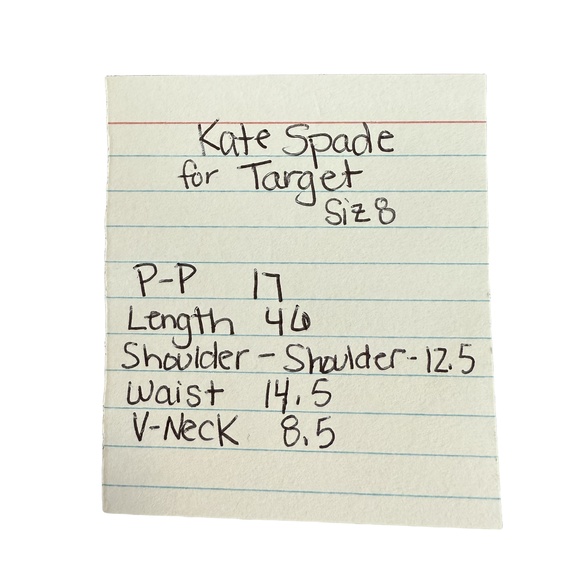 Kate Spade
for Target
Siz 8
P-P 17
Length 46
Shoulder - Shoulder - 12.5
Waist 14.5
V-Neck 8.5